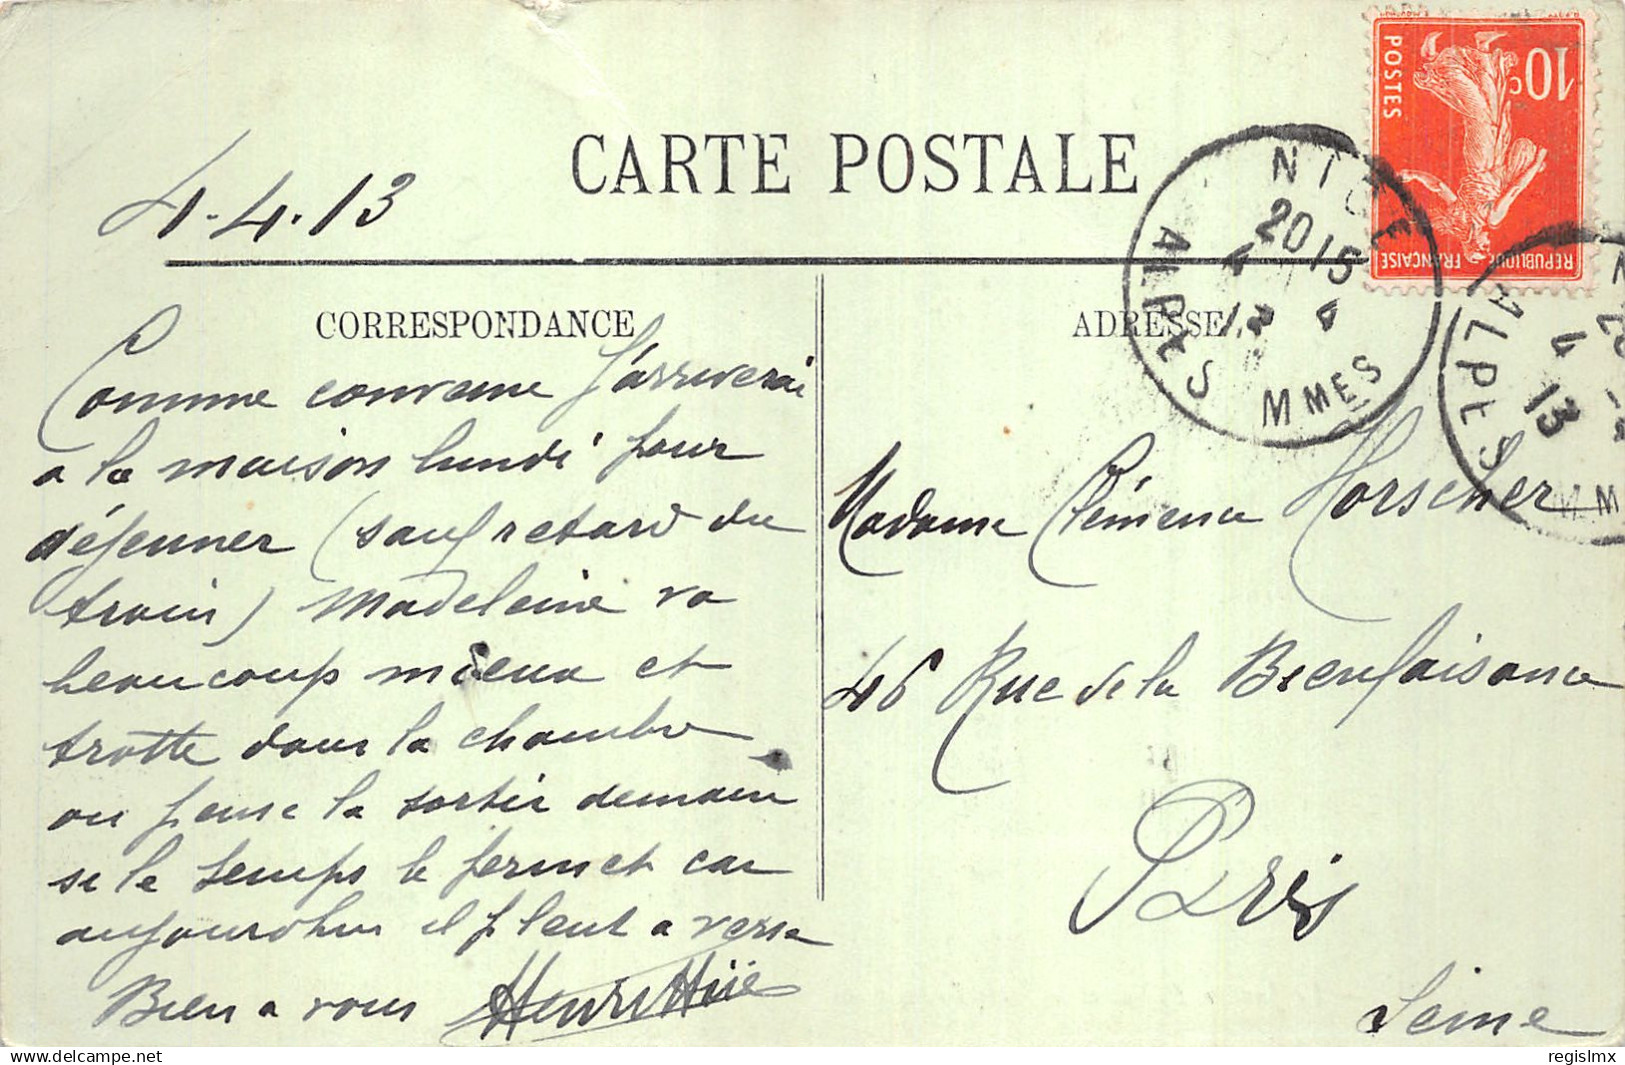 4-4.13
CARTE POSTALE
CORRESPONDANCE
Comme convenu j'arriverai
a la maison lundi pour
déjeuner (sauf retard du
train) Madeleine va
beaucoup mieux et
trotte dans la chambre
on pense la sortir demain
si le temps le permet car
aujourdhui il pleut a verse
Bien a vous Henri Huë
ADRESSE
Madame Clémence Horscher
46 Rue de la Bienfaisance
Paris
Seine
10c
POSTES
REPUBLIQUE FRANÇAISE
NICE
20 15
4 4
13
ALPES MMES
N
20
4
13
ALPES MM
delcampe.net
regislmx